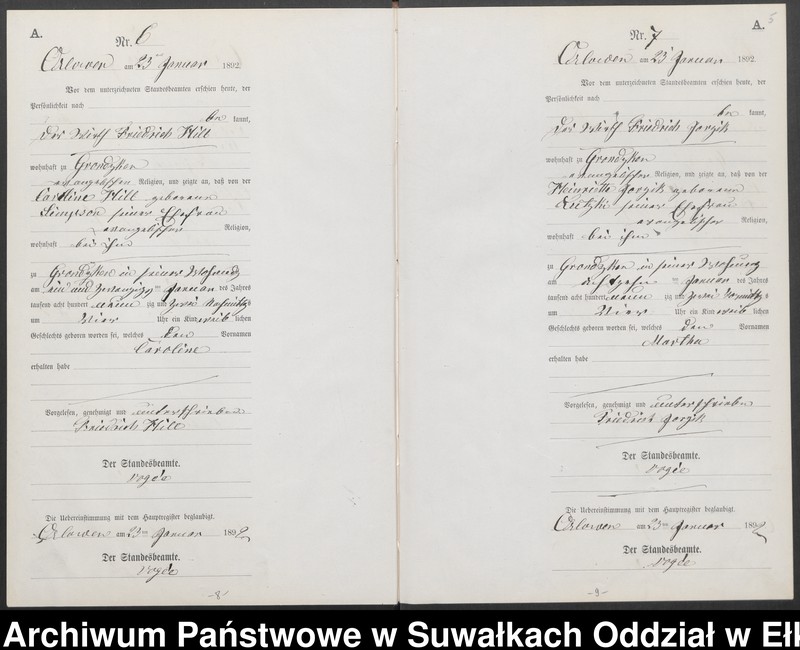 A.
Nr. 6
Orlowen am 23 ten Januar 1892
Vor dem unterzeichneten Standesbeamten erschien heute, der
Persönlichkeit nach
be kannt,
der Wirth Friedrich Hill
wohnhaft zu Grondzken
evangelischer Religion, und zeigte an, daß von der
Caroline Hill geborenen
seiner Ehefrau
evangelischer Religion,
wohnhaft bei ihm
zu Grondzken in seiner Wohnung
am ein und zwanzigsten Januar des Jahres
tausend acht hundert neun zig und zwei Vormittags
um Vier Uhr ein Kind weib lichen
Geschlechts geboren worden sei, welches den Vornamen
Caroline
erhalten habe
Vorgelesen, genehmigt und unterschrieben
Friedrich Hill
Der Standesbeamte.
Die Uebereinstimmung mit dem Hauptregister beglaubigt.
Orlowen am 23 ten Januar 1892
Der Standesbeamte.
-8-
A.
5
Nr. 7
Orlowen am 23 Januar 1892
Vor dem unterzeichneten Standesbeamten erschien heute, der
Persönlichkeit nach
be kannt,
der Wirth Friedrich Jorzik
wohnhaft zu Grondzken
evangelischer Religion, und zeigte an, daß von der
Heinriette Jorzik geborenen
seiner Ehefrau
evangelischer Religion,
wohnhaft bei ihm
zu Grondzken in seiner Wohnung
am achtzehn ten Januar des Jahres
tausend acht hundert neun zig und zwei Vormittags
um Vier Uhr ein Kind weib lichen
Geschlechts geboren worden sei, welches den Vornamen
Martha
erhalten habe
Vorgelesen, genehmigt und unterschrieben
Friedrich Jorzik
Der Standesbeamte.
Die Uebereinstimmung mit dem Hauptregister beglaubigt.
Orlowen am 23 ten Januar 1892
Der Standesbeamte.
-9-
Archiwum Państwowe w Suwałkach Oddział w Ełk